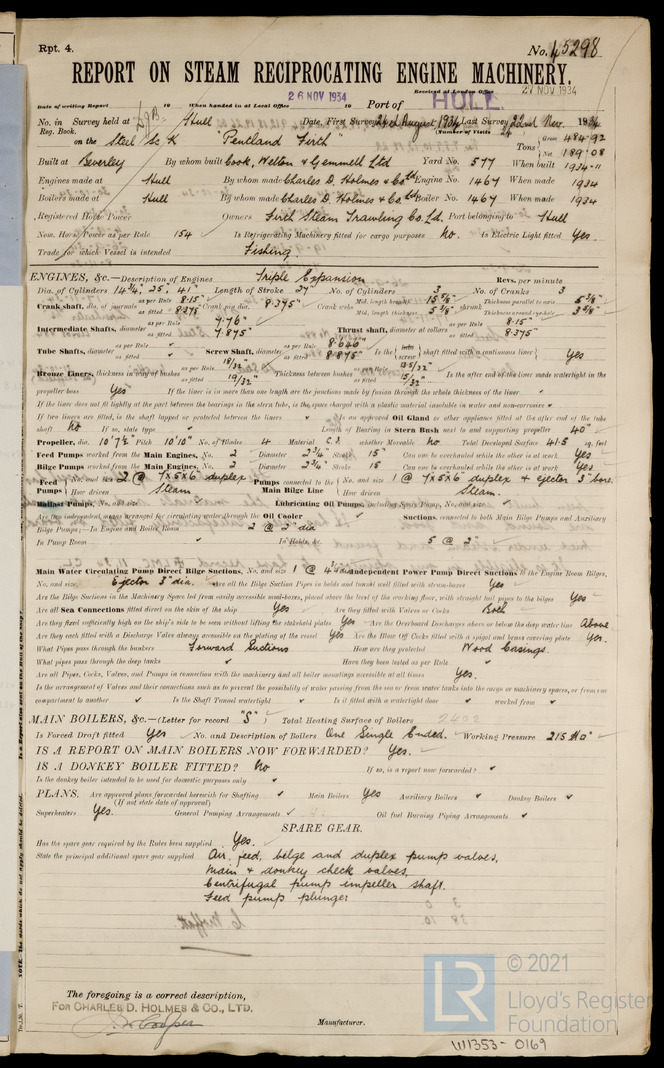 Rpt. 4.
No. 45298
REPORT ON STEAM RECIPROCATING ENGINE MACHINERY.
Received at London Office 27 NOV 1934
Date of writing Report 19 When handed in at Local Office 26 NOV 1934 19 Port of HULL
No. in Survey held at Hull Date, First Survey 24th August 1934 Last Survey 22nd Nov. 1934
Reg. Book. (Number of Visits 24
on the Steel Sc K "Pentland Firth" Tons Gross 484.92
Net 189.08
Built at Beverley By whom built Cook, Welton & Gemmell Ltd Yard No. 577 When built 1934-11
Engines made at Hull By whom made Charles D. Holmes & Co Ltd Engine No. 1467 When made 1934
Boilers made at Hull By whom made Charles D. Holmes & Co Ltd Boiler No. 1467 When made 1934
Registered Horse Power Owners Firth Steam Trawling Co. Ld. Port belonging to Hull
Nom. Horse Power as per Rule 154 Is Refrigerating Machinery fitted for cargo purposes No. Is Electric Light fitted Yes
Trade for which Vessel is intended Fishing.
ENGINES, &c.—Description of Engines Triple Expansion Revs. per minute
Dia. of Cylinders 14¾, 25, 41" Length of Stroke 27" No. of Cylinders 3 No. of Cranks 3
Crank shaft, dia. of journals as per Rule 8.15" as fitted 8.375" Crank pin dia. 8.375" Crank webs Mid. length breadth 15⅝" Thickness parallel to axis 5⅜"
Mid. length thickness 5⅜" Thickness around eye-hole 3⅝"
Intermediate Shafts, diameter as per Rule 7.76" as fitted 7.875" Thrust shaft, diameter at collars as per Rule 8.15" as fitted 8.375"
Tube Shafts, diameter as per Rule as fitted Screw Shaft, diameter as per Rule 8.646" as fitted 8.875" Is the tube screw shaft fitted with a continuous liner Yes
Bronze Liners, thickness in way of bushes as per Rule 18/32" as fitted 19/32" Thickness between bushes as per Rule as fitted 15/32" Is the after end of the liner made watertight in the
propeller boss Yes If the liner is in more than one length are the junctions made by fusion through the whole thickness of the liner
If the liner does not fit tightly at the part between the bearings in the stern tube, is the space charged with a plastic material insoluble in water and non-corrosive
If two liners are fitted, is the shaft lapped or protected between the liners Is an approved Oil Gland or other appliance fitted at the after end of the tube
shaft No If so, state type Length of Bearing in Stern Bush next to and supporting propeller 40"
Propeller, dia. 10'7½" Pitch 10'10" No. of Blades 4 Material C.I. whether Moveable No Total Developed Surface 41.5 sq. feet
Feed Pumps worked from the Main Engines, No. 2 Diameter 2¾" Stroke 15" Can one be overhauled while the other is at work Yes
Bilge Pumps worked from the Main Engines, No. 2 Diameter 2¾" Stroke 15 Can one be overhauled while the other is at work Yes
Feed Pumps No. and size 2 @ 7x5x6 duplex Pumps connected to the Main Bilge Line No. and size 1 @ 7x5x6 duplex & Ejector 3" bore.
How driven Steam How driven Steam.
Ballast Pumps, No. and size Lubricating Oil Pumps, including Spare Pump, No. and size
Are two independent means arranged for circulating water through the Oil Cooler Suctions, connected to both Main Bilge Pumps and Auxiliary
Bilge Pumps;—In Engine and Boiler Room 2 @ 2" dia
In Pump Room In Holds, &c. 5 @ 2"
Main Water Circulating Pump Direct Bilge Suctions, No. and size 1 @ 4¾" Independent Power Pump Direct Suctions to the Engine Room Bilges,
No. and size Ejector 3" dia. Are all the Bilge Suction Pipes in holds and tunnel well fitted with strum-boxes Yes
Are the Bilge Suctions in the Machinery Space led from easily accessible mud-boxes, placed above the level of the working floor, with straight tail pipes to the bilges Yes
Are all Sea Connections fitted direct on the skin of the ship Yes Are they fitted with Valves or Cocks Both
Are they fixed sufficiently high on the ship's side to be seen without lifting the stokehold plates Yes Are the Overboard Discharges above or below the deep water line Above
Are they each fitted with a Discharge Valve always accessible on the plating of the vessel Yes Are the Blow Off Cocks fitted with a spigot and brass covering plate Yes.
What Pipes pass through the bunkers Forward Suctions How are they protected Wood Casings.
What pipes pass through the deep tanks Have they been tested as per Rule
Are all Pipes, Cocks, Valves, and Pumps in connection with the machinery and all boiler mountings accessible at all times Yes.
Is the arrangement of Valves and their connections such as to prevent the possibility of water passing from the sea or from water tanks into the cargo or machinery spaces, or from one
compartment to another Is the Shaft Tunnel watertight Is it fitted with a watertight door worked from
MAIN BOILERS, &c.—(Letter for record "S") Total Heating Surface of Boilers 2402
Is Forced Draft fitted Yes No. and Description of Boilers One Single Ended. Working Pressure 215 lbs"
IS A REPORT ON MAIN BOILERS NOW FORWARDED? Yes.
IS A DONKEY BOILER FITTED? No If so, is a report now forwarded?
Is the donkey boiler intended to be used for domestic purposes only
PLANS. Are approved plans forwarded herewith for Shafting Main Boilers Yes Auxiliary Boilers Donkey Boilers
(If not state date of approval)
Superheaters Yes. General Pumping Arrangements Oil fuel Burning Piping Arrangements
SPARE GEAR.
Has the spare gear required by the Rules been supplied Yes.
State the principal additional spare gear supplied Air, feed, bilge and duplex pump valves,
Main & donkey check valves,
Centrifugal pump impeller shaft.
Feed pump plunger
The foregoing is a correct description,
FOR CHARLES D. HOLMES & CO., LTD.
Manufacturer.
© 2021
Lloyd's Register
Foundation
W1353-0169